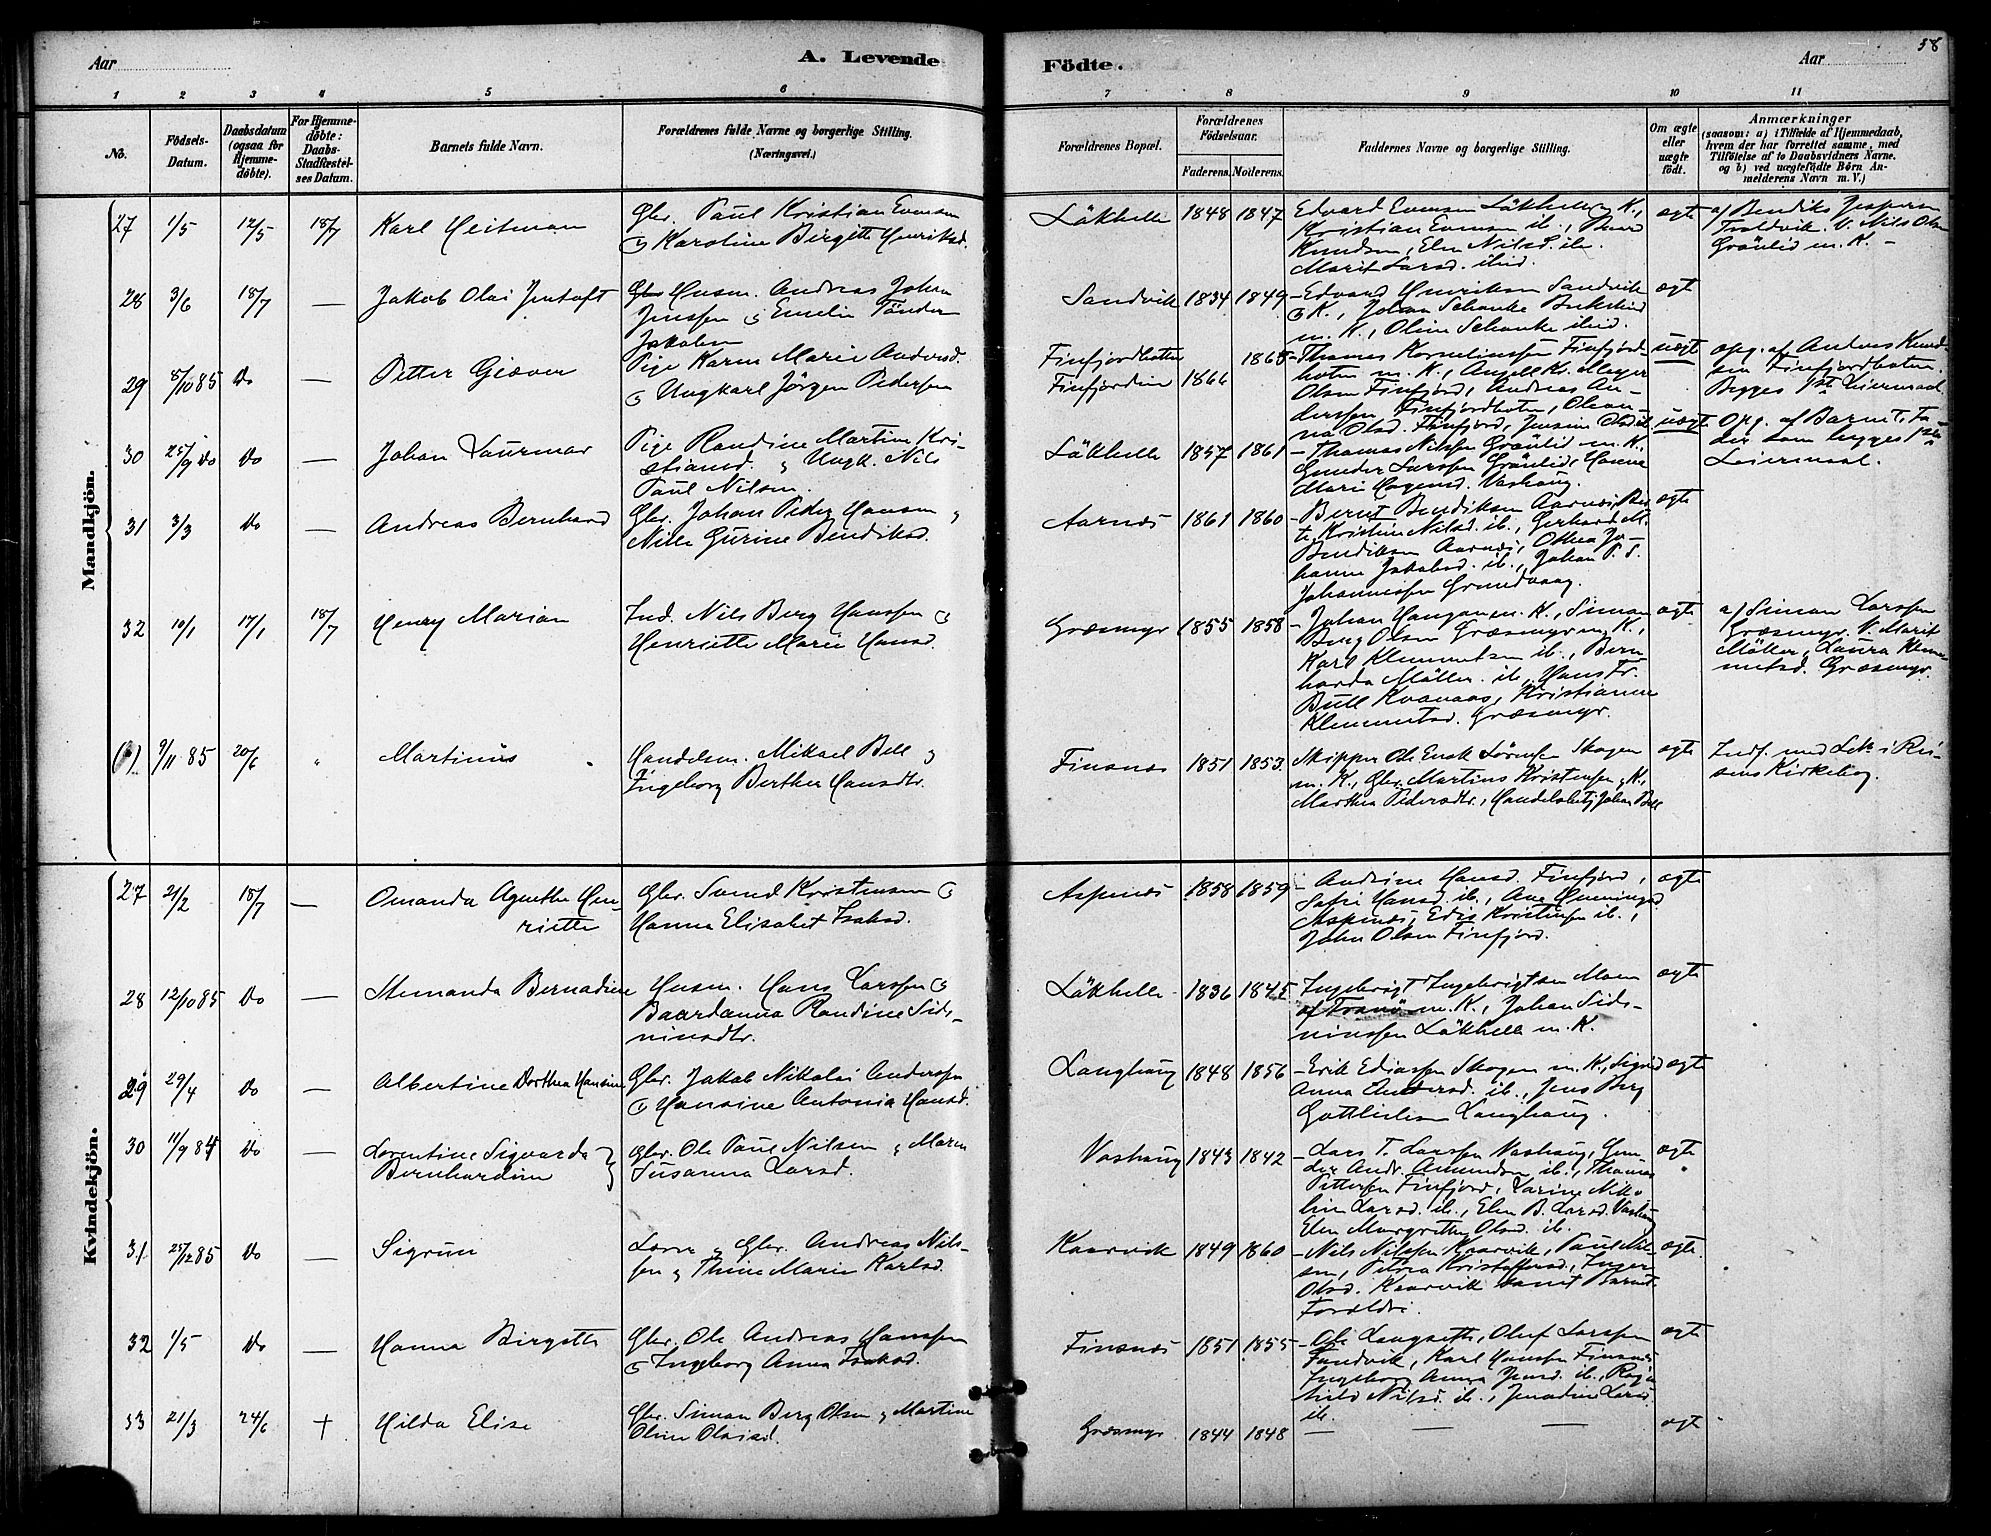 58
Aar
A. Levende
Födte.
Aar
1 2 3 4 5 6 7 8 9 10 11
No.
Födsels-
Datum.
Daabsdatum
(ogsaa for
Hjemme-
döbte).
For Hjemme-
döbte:
Daabs-
Stadfæstel-
ses Datum.
Barnets fulde Navn.
Forældrenes fulde Navne og borgerlige Stilling.
(Næringsvei.)
Forældrenes Bopæl.
Forældrenes
Födselsaar.
Faderens. Moderens.
Faddernes Navne og borgerlige Stilling.
Om ægte
eller
uægte
födt.
Anmærkninger
(saasom: a) i Tilfælde af Hjemmedaab,
hvem der har forrettet samme, med
Tilföielse af to Daabsvidners Navne.
og b) ved uægtefödte Börn An-
melderens Navn m. V.)
Mandkjön.
27 1/5 12/5 18/7 Karl Heitman
Gbr. Paul Kristian Evensen
& Karoline Birgitte Henriksd.
Läkhelle 1848 1847
Edvard Evensen Läkhelle m. K.,
Kristian Evensen ib., Peder
Knudsen, Elen Nilsd. ib.
Marit Larsd. ibid.
ægte
a/ Bendiks Jespersen
Troldvik. V. Nils Olsen
Grönlid m. K. -
28 3/6 18/7 — Jakob Olai Jentoft
Husm. Andreas Johan
Jenssen & Emelie Tönder
Jakobsen
Sandvik 1834 1849
Edvard Henriksen Sandvik
& K., Johan Schanke Bukskind
m. K., Oline Schanke ibid.
ægte
29 8/10 85 Do — Petter Giæver
Pige Karen Marie Andersd.
& Ungkarl Jörgen Pedersen
Finfjordbotten 1865
Finfjorden 1866
Thomas Kornelinssen Finfjord-
boten m. K., Angell K. Meyer
Olsen Finfjord, Andreas An-
derssen Finfjordboten, Olean-
na Olsd. Finfjord, Jensine Olsd. ib.
uægte
Opg. af Anders Knud-
sen Finfjordboten.
Begges 1ste Leiermaal.
30 25/9 Do Do — Johan Laurmar
Pige Randine Martine Kri-
stiansd. & Ungk. Nils
Paul Nilsen.
Läkhelle 1857 1861
Thomas Nilssen Grönlid m. K.
Gunder Larssen Grönlid, Hanne
Marie Hagensd. Vashaug.
uægte
Opg. af Barnets Fa-
der som begges 1ste
Leiermaal.
31 3/3 Do — Andreas Bernhard
Gbr. Johan Peder Hansen &
Nille Gurine Bendiksd.
Aarnæs 1861 1860
Bernt Bendiksen Aarnæs, Be-
te Kristine Nilsd. ib., Gerhard M.
Bendiksen Aarnæs, Othea Jo-
hanne Jakobsd. ib., Johan P. S.
Johannessen Grundvaag.
ægte
32 10/1 17/1 18/7 Henry Marian
Ind. Nils Berg Hanssen &
Henriette Marie Hansd.
Græsmyr 1855 1858
Johan Haugan m. K., Simon
Berg Olsen Græsmyr m. K.,
Karl Klemmetsen ib., Bern-
harda Möller ib., Hans Fr.
Bull Kvanaas, Kristianne
Klemmetsd. Græsmyr.
ægte
a/ Simon Larssen
Græsmyr. V. Marit
Möller, Laura Klem-
metsd. Græsmyr.
9/11 85 20/6 " Martinus
Handelsm. Mikael Bell &
Ingeborg Berthea Hansdtr.
Finsnæs 1851 1853
Skipper Ole Enok Sörensen Skogen
m. K., Gbr. Martins Kristensen & K.,
Marthea Pedersdtr., Handelsbetj. Johan Bell
ægte
Indf. med Lit. i Rei-
sens Kirkebog.
Kvindekjön.
27 21/2 18/7 — Omanda Agnethe Hen-
riette
Gbr. Svend Kristensen &
Hanna Elisabet Isaksd.
Aspenæs 1858 1859
Andrine Hansd. Finfjord,
Sofie Hansd. ib., Ane Henningsd.
Aspenæs, Edis Kristensen ib.,
John Olsen Finfjord.
ægte
28 12/10 85 Do — Memanda Bernadine
Husm. Hans Larssen &
Baardanna Randine Sids-
ninsdtr.
Läkhelle 1836 1845
Ingebrigt Ingebrigtsen Moen
af Tranö m. K., Johan Sids-
ninssen Läkhelle m. K.
ægte
29 29/4 Do — Albertine Dorthea Hansine
Gbr. Jakob Nikolai Andersen
& Hansine Antonia Hansd.
Langhaug 1848 1856
Erik Ediassen Skogen m. K., Sigrid
Anna Andersd. ib., Jens Berg
Gottliebsen Langhaug.
ægte
30 11/9 84 Do — Lorentine Sigvarda
Bernhardine
Gbr. Ole Paul Nilsen & Maren
Susanna Larsd.
Vashaug 1843 1842
Lars T. Larssen Vashaug, Gun-
der Andr. Amundsen ib., Thomas
Pettersen Finfjord, Larine Niko-
line Larsd. ib., Elen B. Larsd. Vashaug
Elen Margrethe Olsd. ib.
ægte
31 25/12 85 Do — Sigrun
Lærer & Gbr. Andreas Nils-
sen & Thine Marie Karlsd.
Kaarvik 1849 1860
Nils Nilssen Kaarvik, Paul Nil-
sen, Petrea Kristoffersd., Inger
Olsd. Kaarvik samt Barnets
Forældre.
ægte
32 1/5 Do — Hanna Birgitte
Gbr. Ole Andreas Hanssen
& Ingeborg Anna Isaksd.
Finsnæs 1851 1855
Ole Langseth, Oluf Larssen
Sandvik, Karl Hanssen Finsnæs
Ingeborg Anna Jensd. ib., Ragn-
hild Nilsd. ib., Jensdine Larsd.
ib.
ægte
33 21/3 24/6 † Hilda Elise
Gbr. Simon Berg Olsen & Martine
Oline Olaisd.
Græsmyr 1844 1848
— — —
ægte